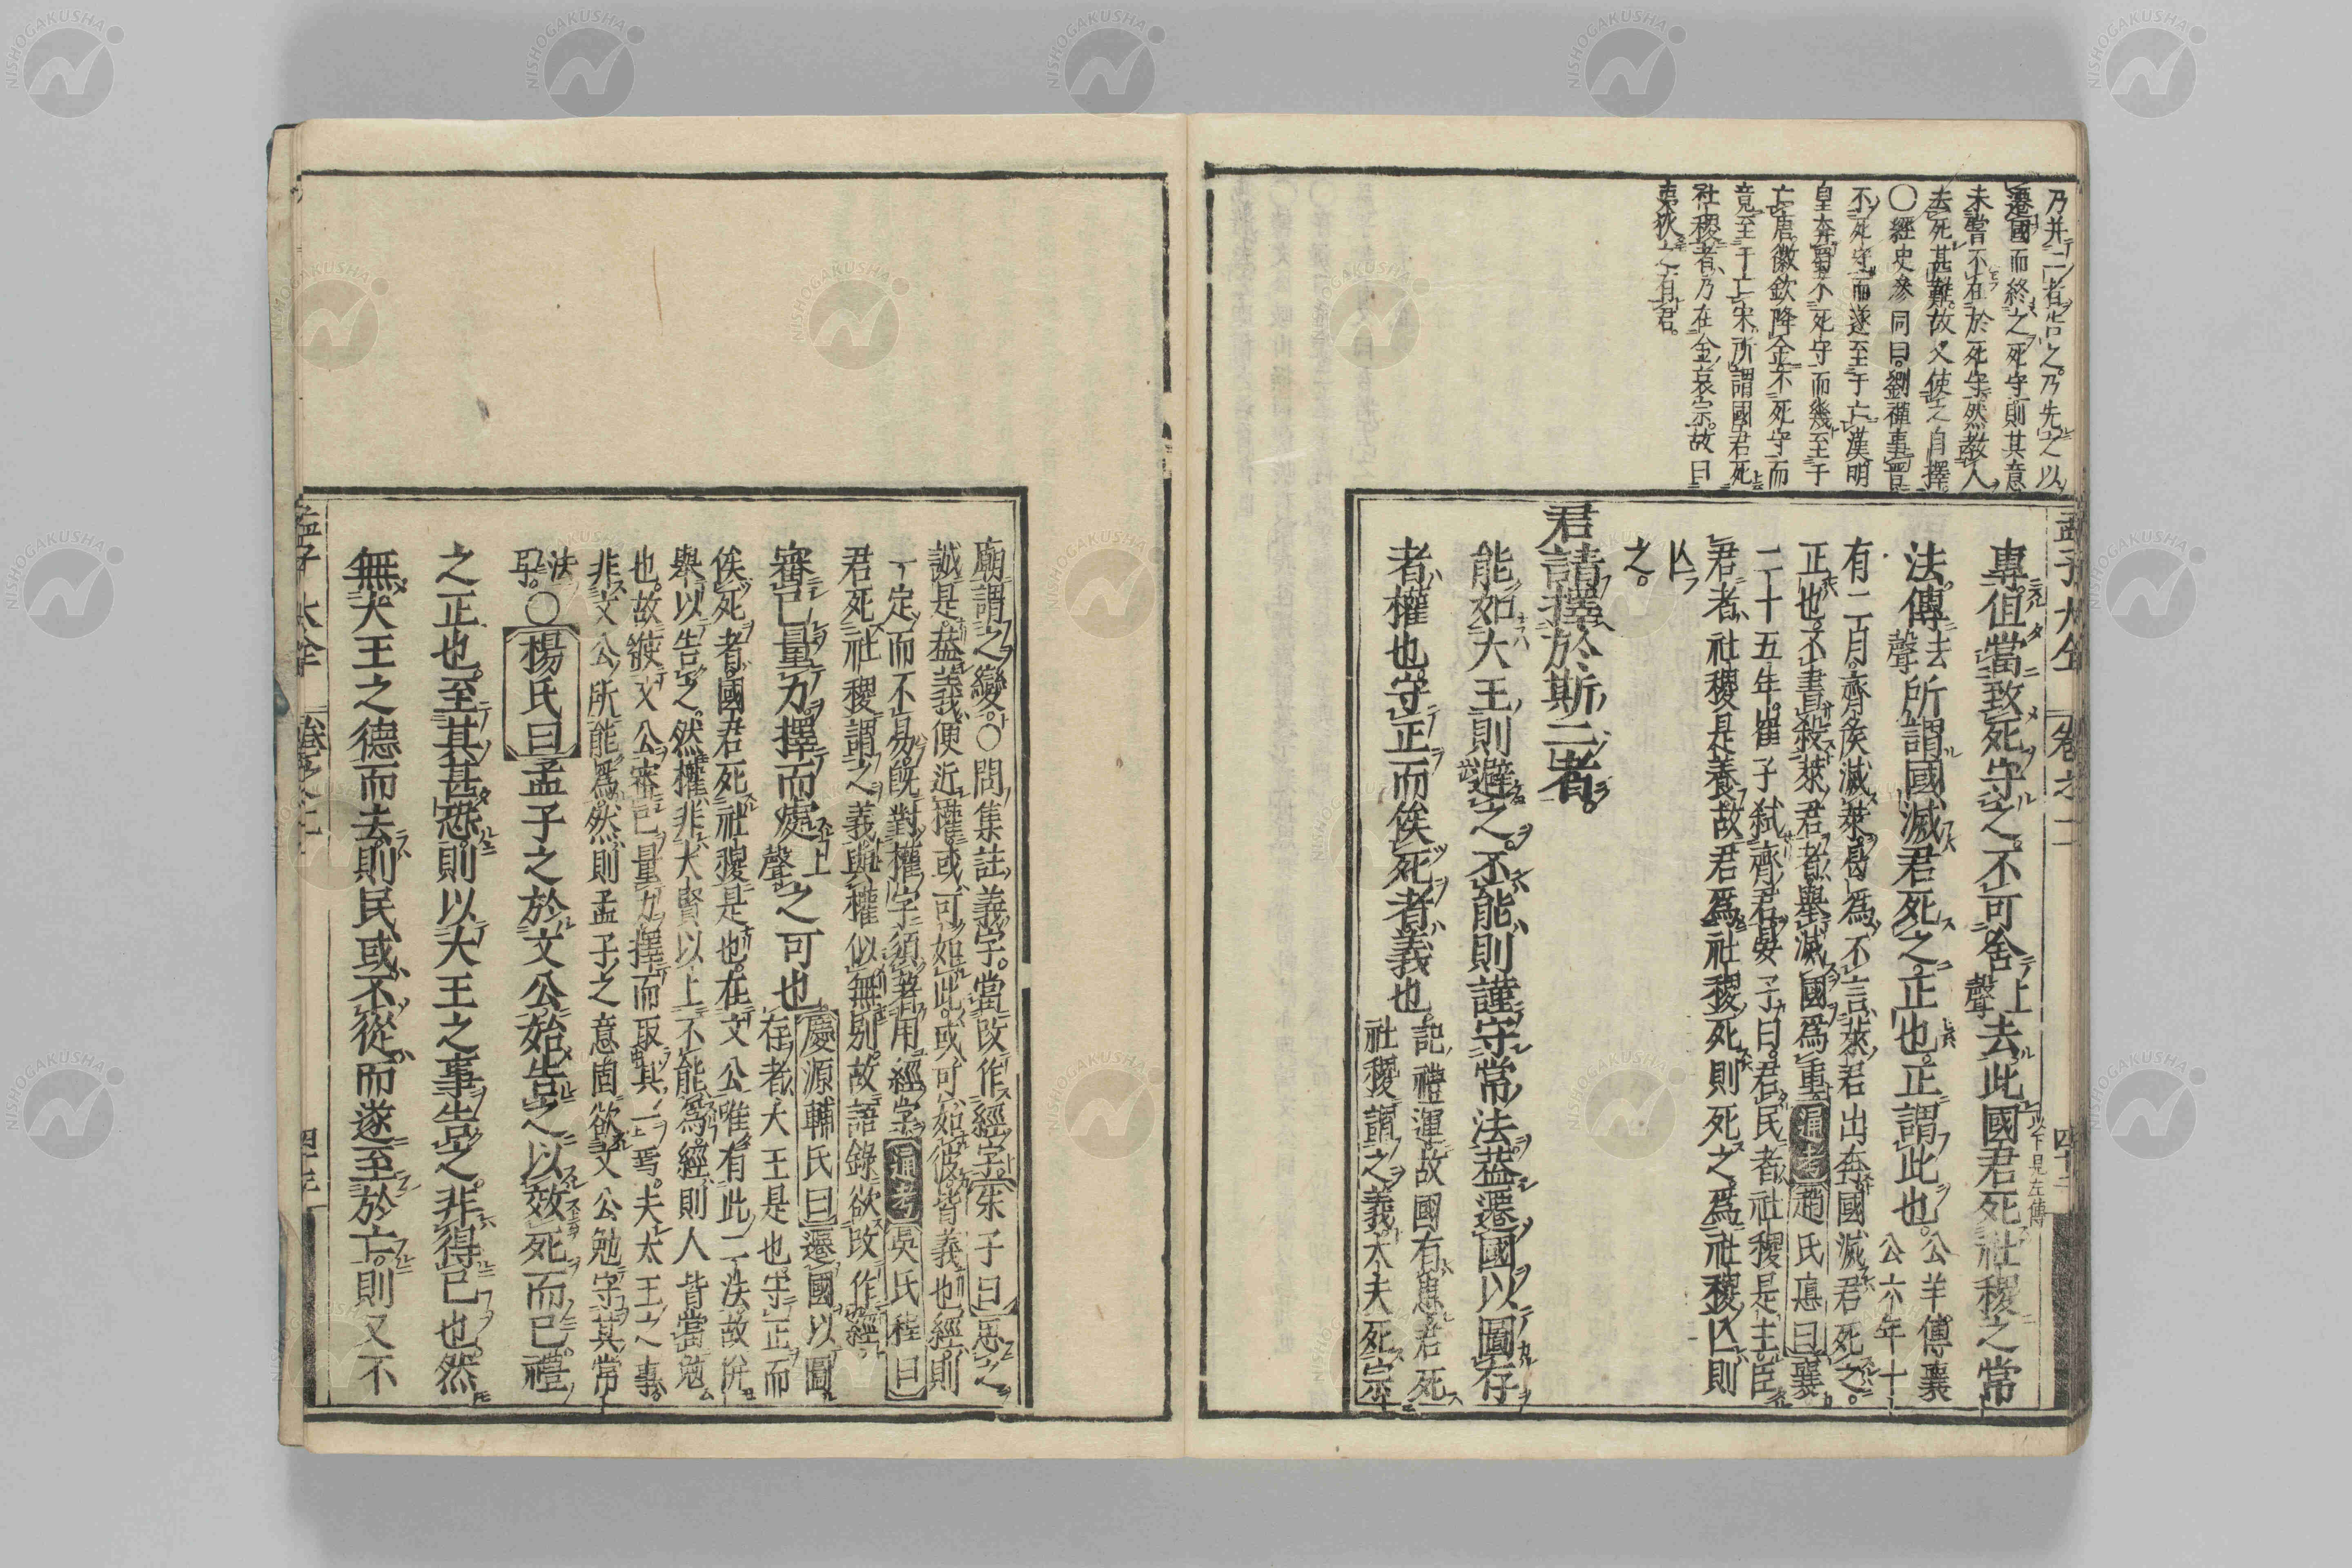 乃并二者告之乃先之以
遷國而終之死守則其意
未嘗不在於死守然教人
去死甚難故又使之自擇
○經史參同曰劉禪事
不死守而遂至于亡漢明
皇奔蜀不死守而幾至于
亡唐徽欽降金不死守而
竟至于亡宋所謂國君死
社稷者乃在金哀宗故曰
夷狄之有君
孟子大全 卷之二 四十二
專但當致死守之不可舍上聲去此國君死社稷之常以下見左傳
法傳去聲所謂國滅君死之正也正謂此也公羊傳襄公六年十
有二月齊侯滅萊曷爲不言萊君出奔國滅君死之
正也不書殺萊君者舉滅國爲重通考趙氏悳曰襄
二十五年崔子弑齊君晏子曰君民者社稷是主臣
君者社稷是養故君爲社稷死則死之爲社稷亾則
亾之
君請擇於斯二者
能如大王則避之不能則謹守常法蓋遷國以圖存
者權也守正而俟死者義也記禮運故國有患君死社稷謂之義大夫死宗
廟謂之變○問集註義字當改作經字朱子曰思之
誠是蓋義便近權或可如此或可如彼皆義也經則
一定而不易旣對權字須著用經字通考吳氏程曰
君死社稷謂之義與權似無別故語錄欲改作經
審己量力擇而處上聲之可也慶源輔氏曰遷國以圖存者大王是也守正而
俟死者國君死社稷是也在文公唯有此二法故併
舉以告之然權非大賢以上不能爲經則人皆當勉
也故使文公審己量力擇而取其一焉夫太王之事
非文公所能爲然則孟子之意固欲文公勉守其常
法耳○楊氏曰孟子之於文公始告之以效死而已禮
之正也至其甚恐則以大王之事告之非得已也然
無大王之德而去則民或不從而遂至於亡則又不
孟子大全 卷之二
NISHOGAKUSHA